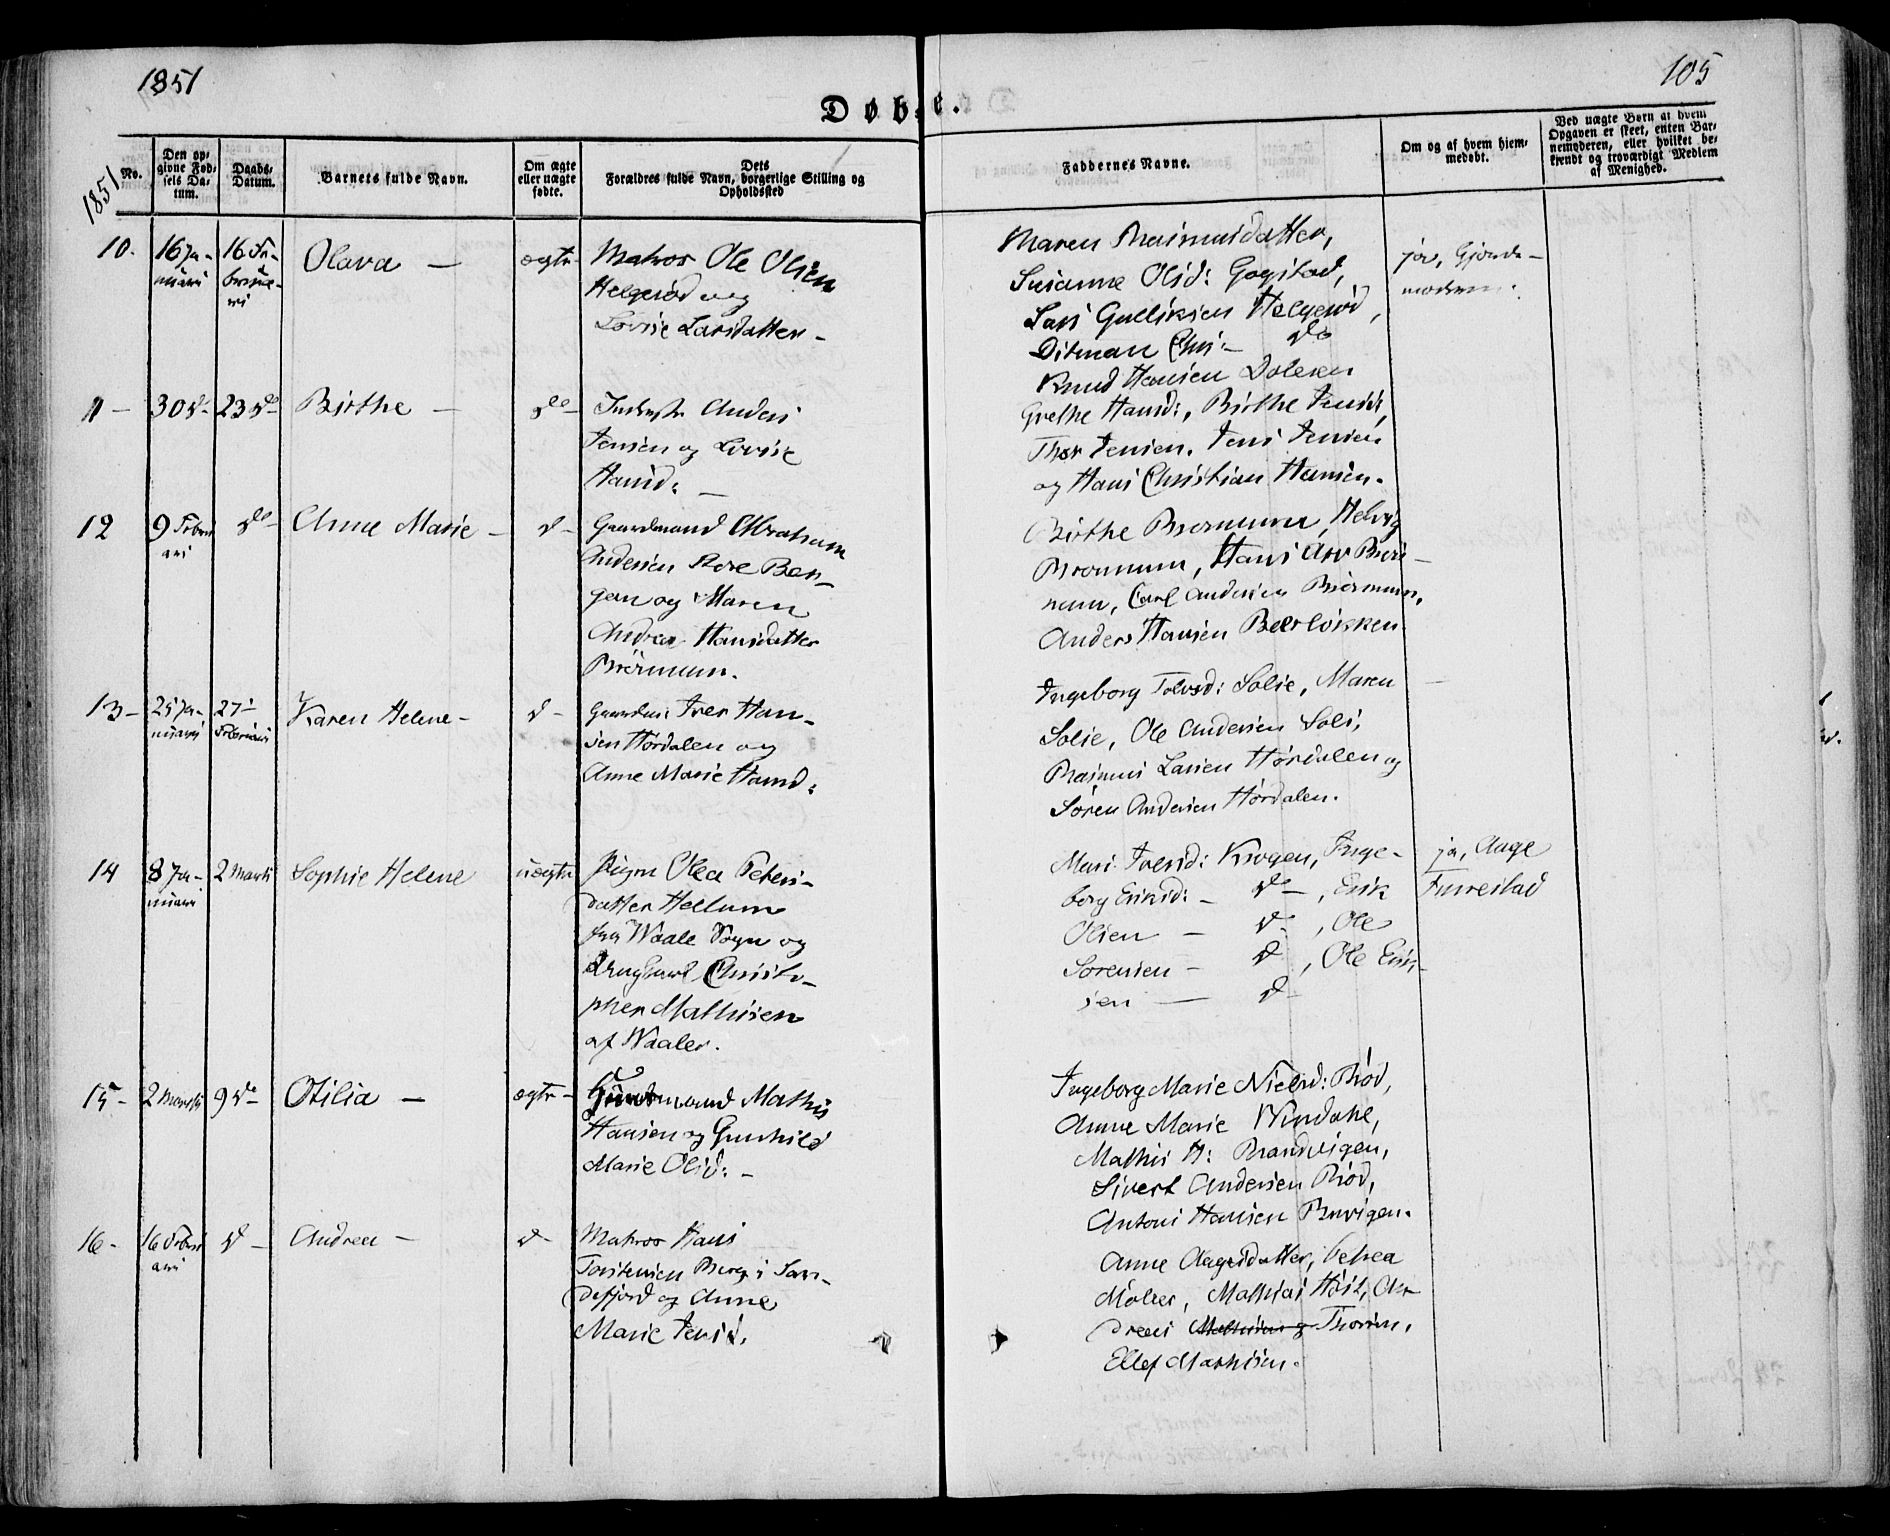 1851
105
Døbte.
1851
No.
Den opgivne Fødsels Datum.
Daabs-Datum.
Barnets fulde Navn.
Om ægte eller uægte fødte.
Dets Forældres fulde Navn, borgerlige Stilling og Opholdssted
Faddernes Navne.
Om og af hvem hjemmedøbt.
Ved uægte Børn at hvem Opgaven er skeet, enten Barnemoderen, eller hvilket bekjendt og troværdigt Medlem af Menighed.
10. 16 Januari 16 Februari Olava — ægte
Matros Ole Olsen
Helgerød og
Lovise Larsdatter –
Maren Rasmusdatter,
Susanne Olsd: Gogstad,
Lars Gulliksen Helgerød,
Ditman Chr: – do
Knud Hansen
ja, Gjorde-
moderen.
11 – 30 d– 23 do Birthe — do–
Anders
Jensen og Lovise
Hansd: —
Grethe Hansd:, Birthe Jensd,
Thor Jensen, Jens Jensen
og Hans Christian Hansen.
12 9 Februari do– Anne Marie – d–
Gaardmand Abraham
Andersen Store Ber-
gan og Maren
Andrea Hansdatter
Brørmum.
Birthe Brørmum, Helvig
Brørmum, Hans Brør-
mum, Carl Andersen Brørmum,
Anders Hansen
13 – 25 Januari 27 – Februari Karen Helene – d –
Gaardm: Iver Han-
sen Hørdalen og
Anne Marie Hansd:
Ingeborg Solie, Maren
Solie, Ole Andersen Soli,
Rasmus Larsen Hørdalen og
Søren Andersen Hørdalen.
14 8 Januari 2 Marti Sophie Helene uægte
Pigen Olea Peters-
datter Hellum
fra Waale Sogn og
Ungkarl Christo-
pher Mathisen
af Waaler.
Mari Krogen, Inge-
borg Eriksd: – do –, Erik
Olsen — d–, Ole
Sørensen – d, Ole Erik-
sen — d–
ja, Aage
Furrestad
15 – 2 Marti 9 do– Otilia — ægte –
Huusmand Mathis
Hansen og Gunhild
Marie Olsd: –
Ingeborg Marie Nielsd: Rød,
Anne Marie Windahl,
Mathis H: Brandvigen,
Sivert Andersen Rød,
Antoni Hansen
16 – 16 Februari d – Andrea – d–
Matros Hans
Torstensen Berg i San-
defjord og Anne
Marie Jensd.
Anne Aagesdatter, Petrea
Møller, Mathias Høst, An-
dreas Thorsen,
Ellef Mathisen.